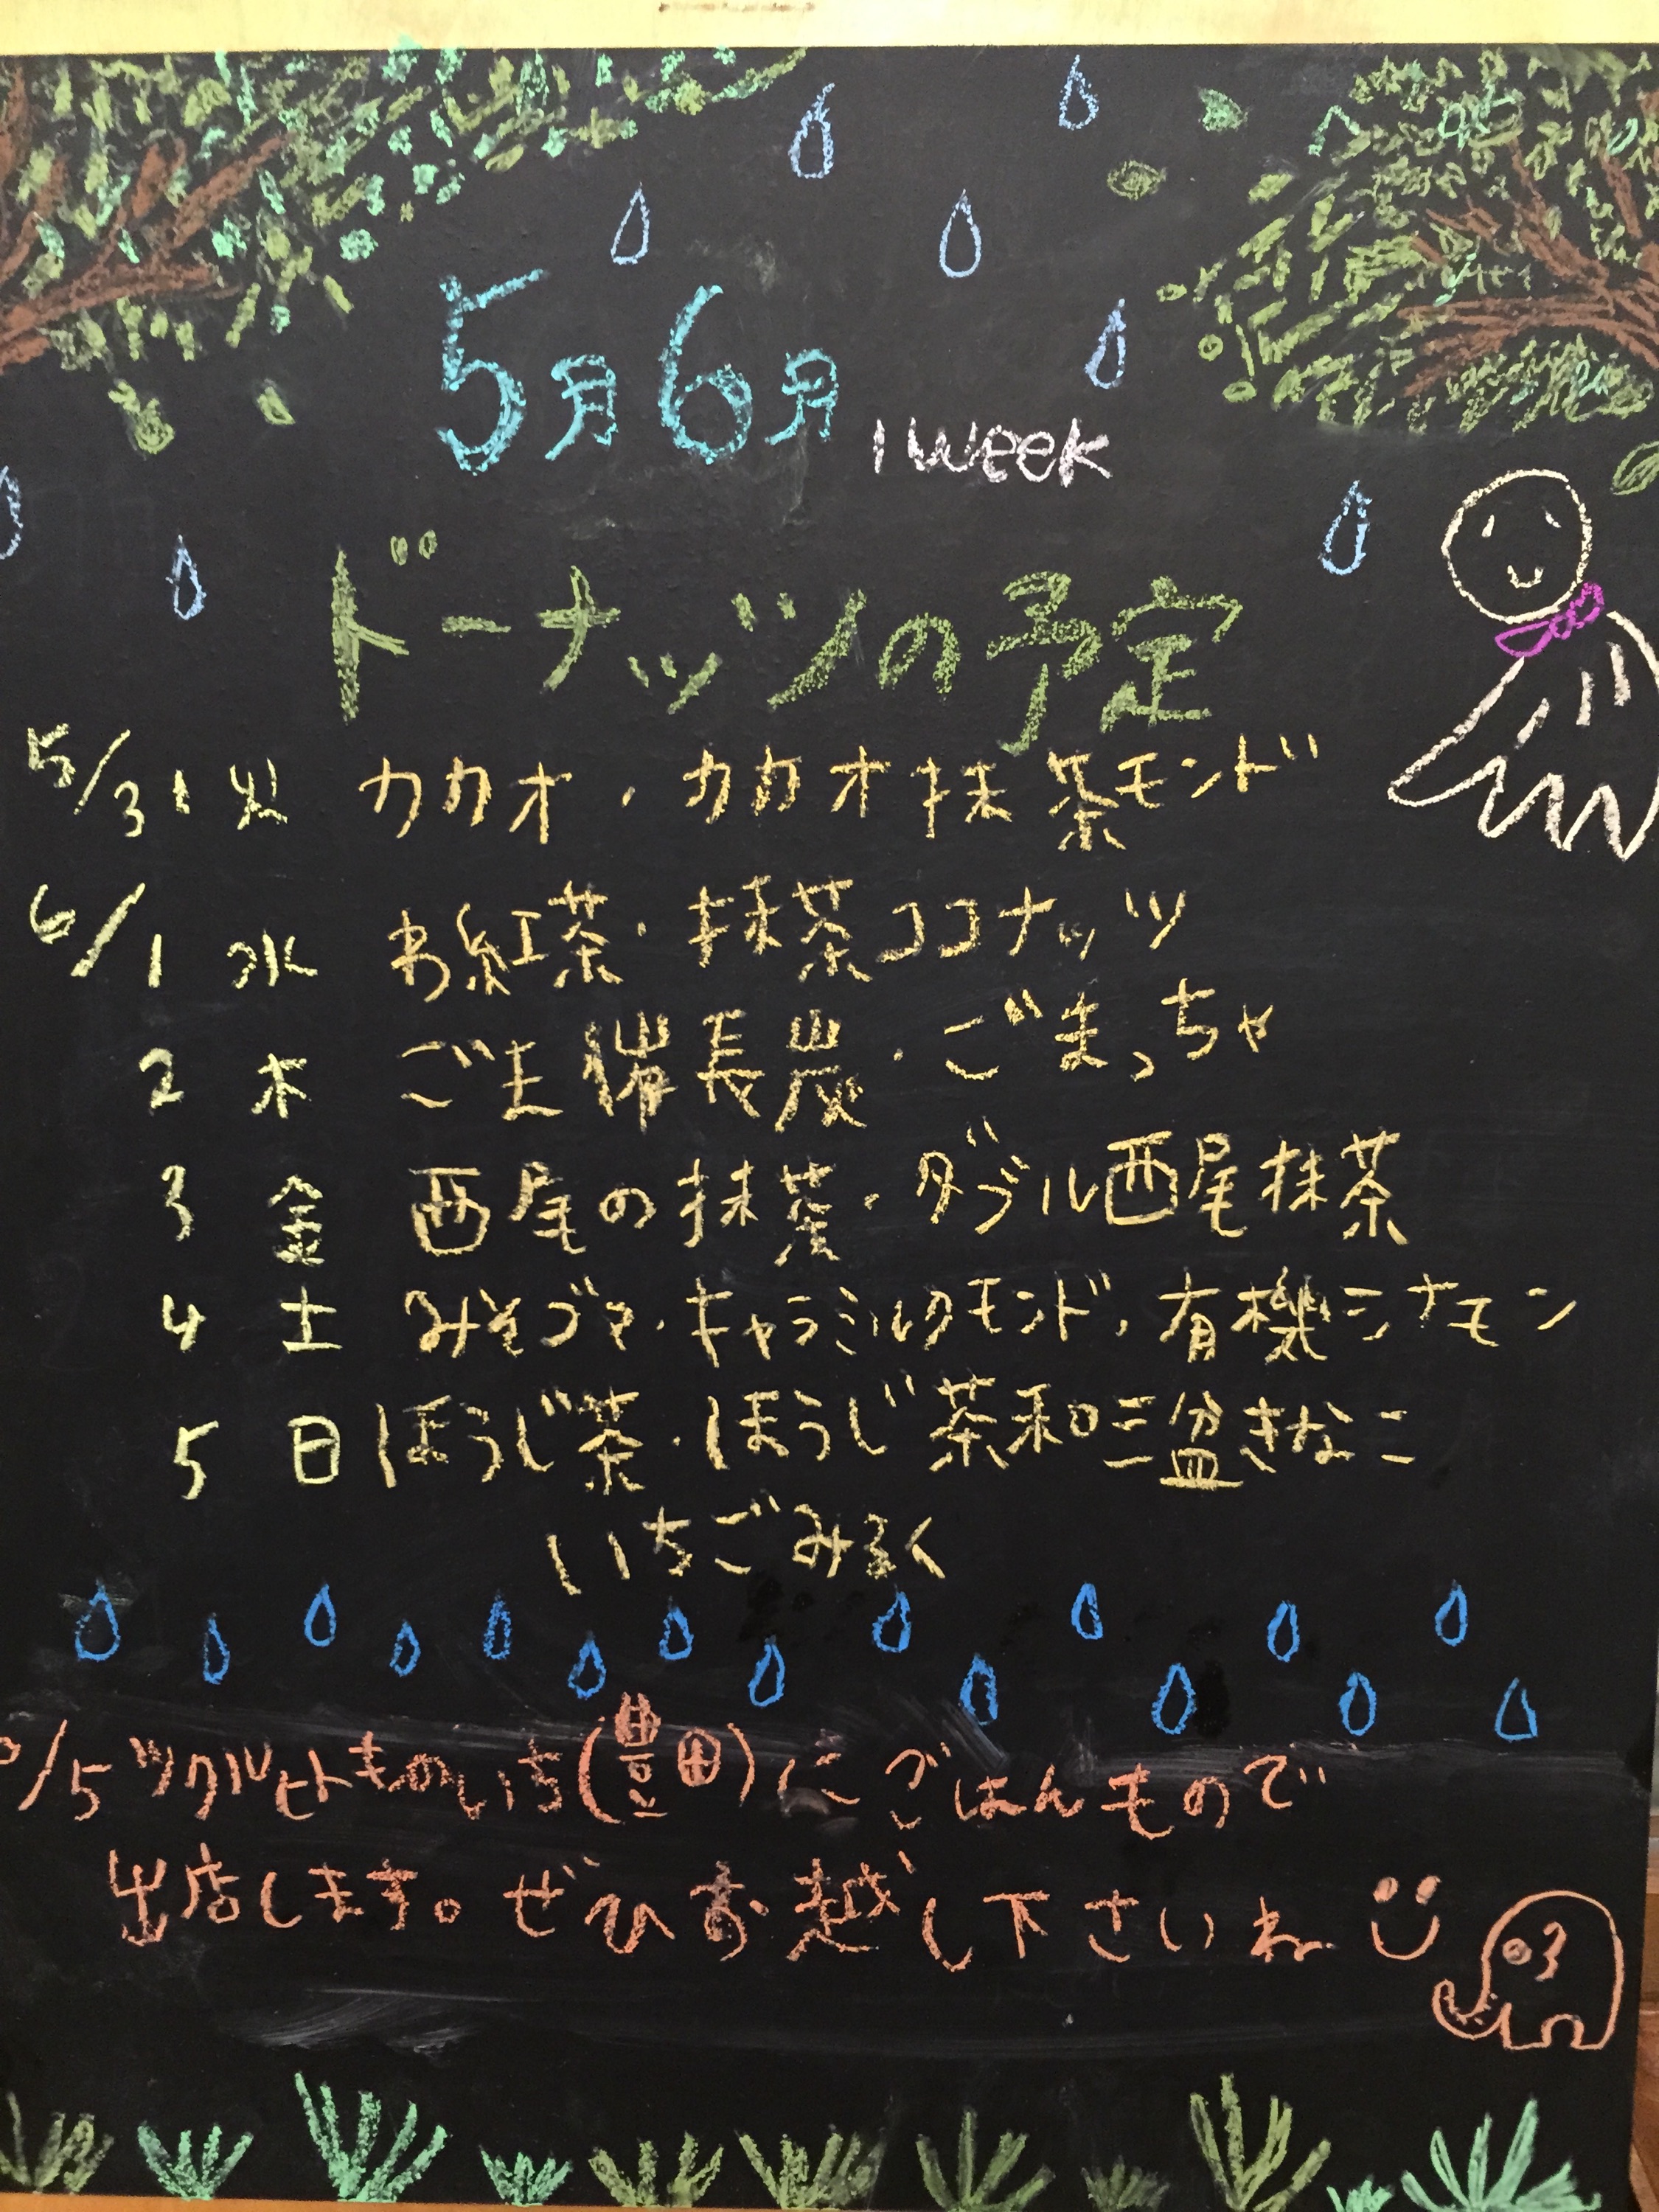 5月6月 1 WEEK
ドーナッツの予定
5/31 火 カカオ・カカオ抹茶モンド
6/1 水 お紅茶・抹茶ココナッツ
2 木 ごま備長炭・ごまっちゃ
3 金 西尾の抹茶・ダブル西尾抹茶
4 土 みそゴマ・キャラミルクモンド・有機シナモン
5 日 ほうじ茶・ほうじ茶和三盆きなこ
いちごみるく
/5 ツクルヒトものいち(豊田)にごはんもので
出店します。ぜひお越し下さいね